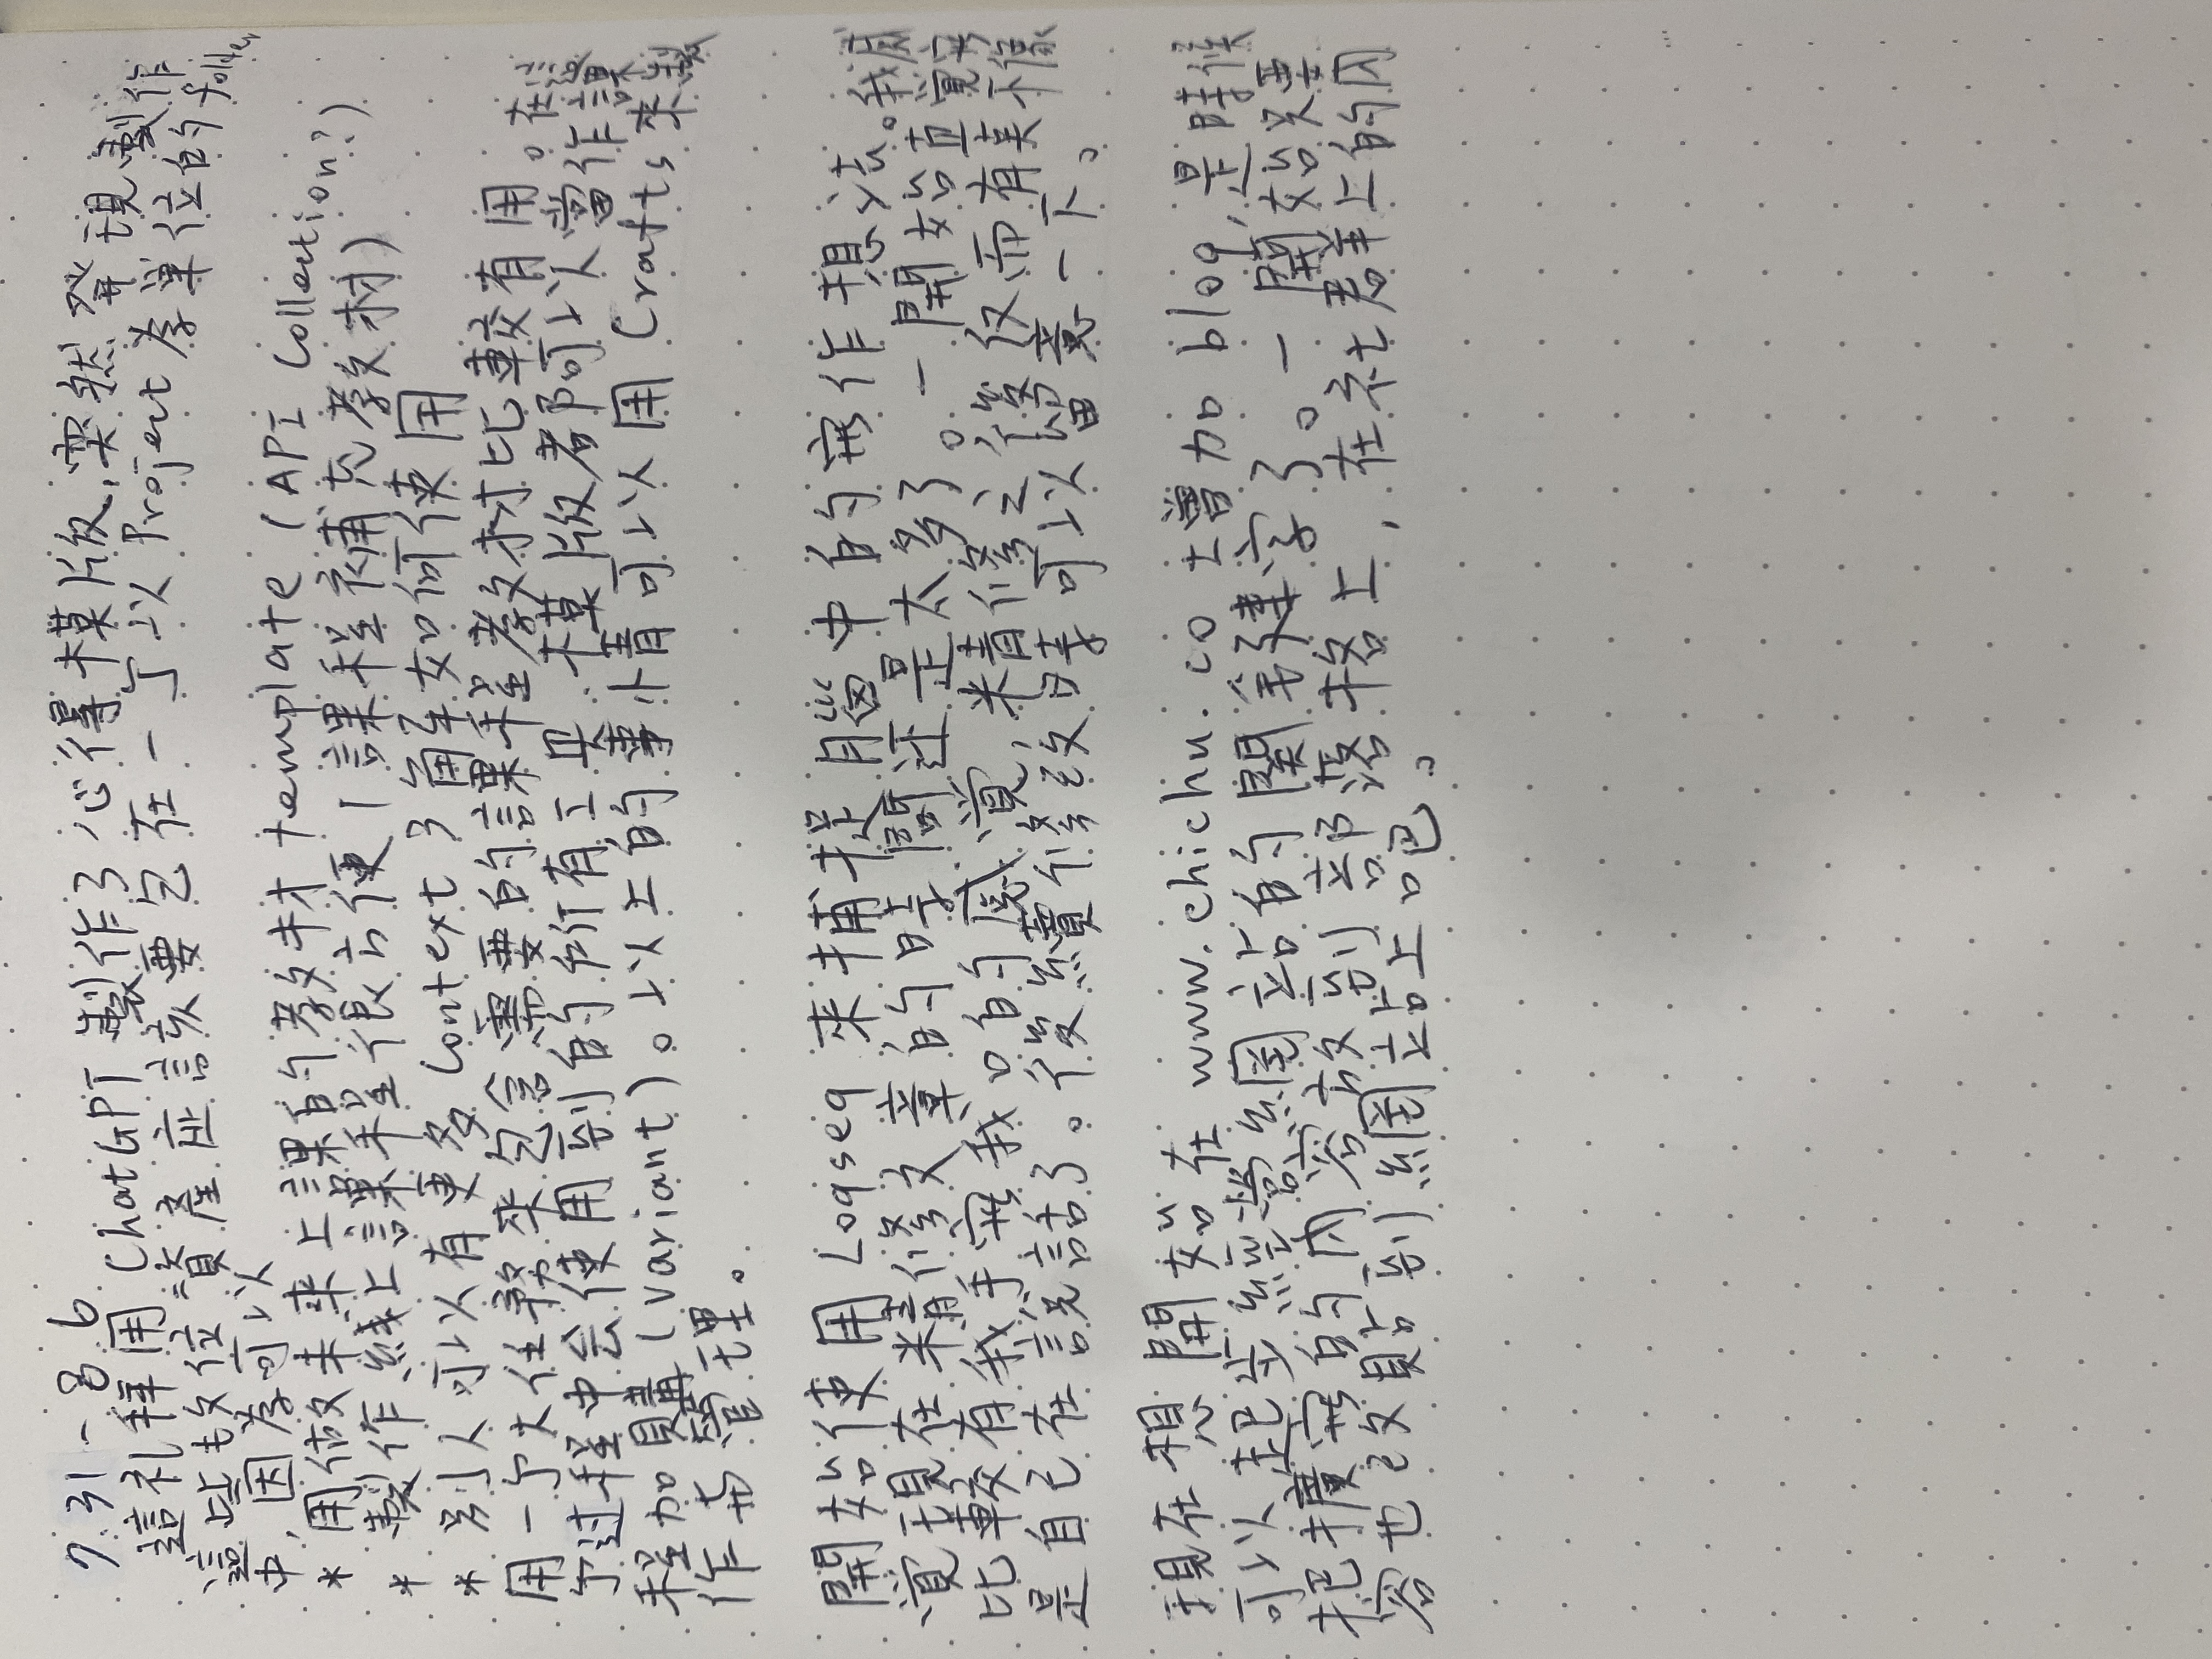 7.31-8.6
這礼拜用 ChatGPT 製作了心得模版,突然發現製作
這些数位資產应該要包在一个以 Project 為單位的 folder
中,因為可以
* 用做未來上課的教材 template (API Collection?)
* 製作綫上課程很方便(課程補充教材)
* 別人可以有更多 Context 了解如何使用
用一个大任務來包含需要的課程教材比較有用。在這
个过程中会使用到的所有工具、模版都可以當作課
程加購(variant)。以上的事情可以用 Crafts 來製
作与管理。
開始使用 Logseq 來捕捉腦中的寫作想法。我感
覚現在精修文章的時間还是太多了。一開始直覺寫
比較有我手寫我口的感覚,精修之後反而有莫不像
是自己在說話了。後續修改時可以留意一下。
現在想開始在 www.chichu.co 增加 blog,是時候
可以起步經营網站的関鍵字了。一開始只要
把擴寫的內容放到部落格上,在社群上的內
容也改貼到網站上吧。